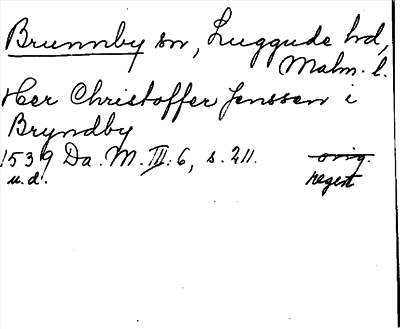 Brunnby sn, Luggude hd,
Malm. l.
Her Christoffer Jenssen i
Bryndby
1539 Da. M. III: 6, s. 211. orig.
u. d. regest